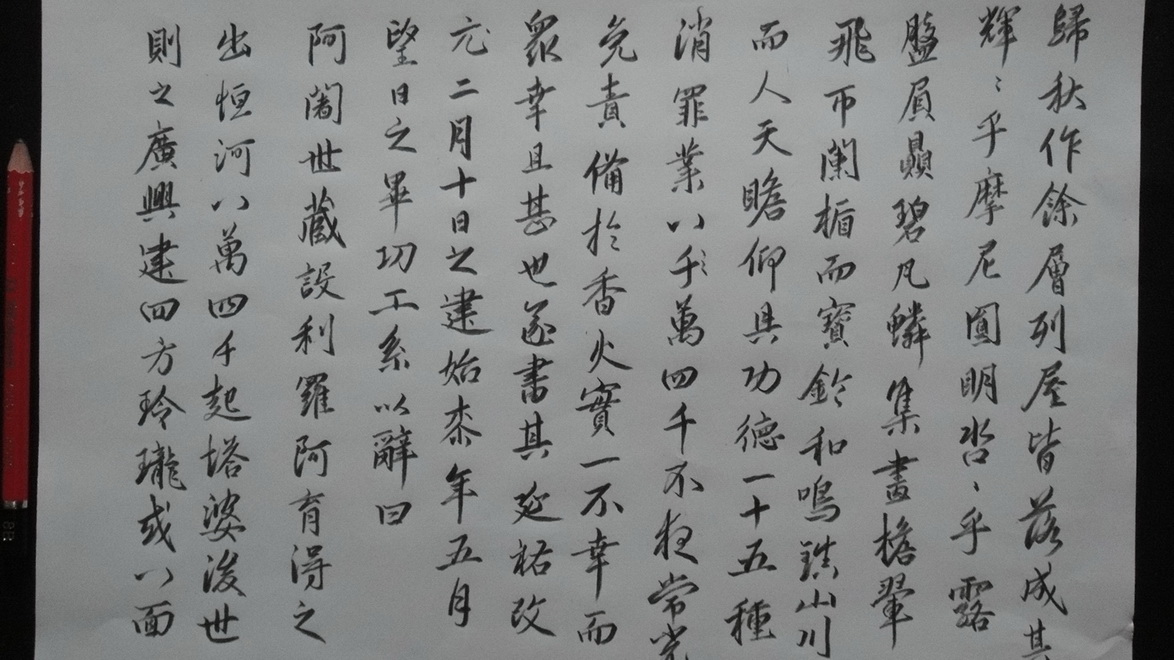 歸秋作餘層列屋皆落成其
輝〻乎摩尼圓明呇〻乎露
盤屓贔碧凡鱗集畫檐翬
飛帀闌楯而寶鈴和鳴鎮山川
而人天瞻仰具功德一十五種
消罪業八千〻萬四千不夜常光
免責備於香火實一不幸而
眾幸且甚也遂書其延祐改
元二月十日之建始柰年五月
望日之畢功工系以辭曰
阿闍世藏設利羅阿育得之
出恒河八萬四千起塔婆後世
則之廣興建四方玲瓏或八面
8B